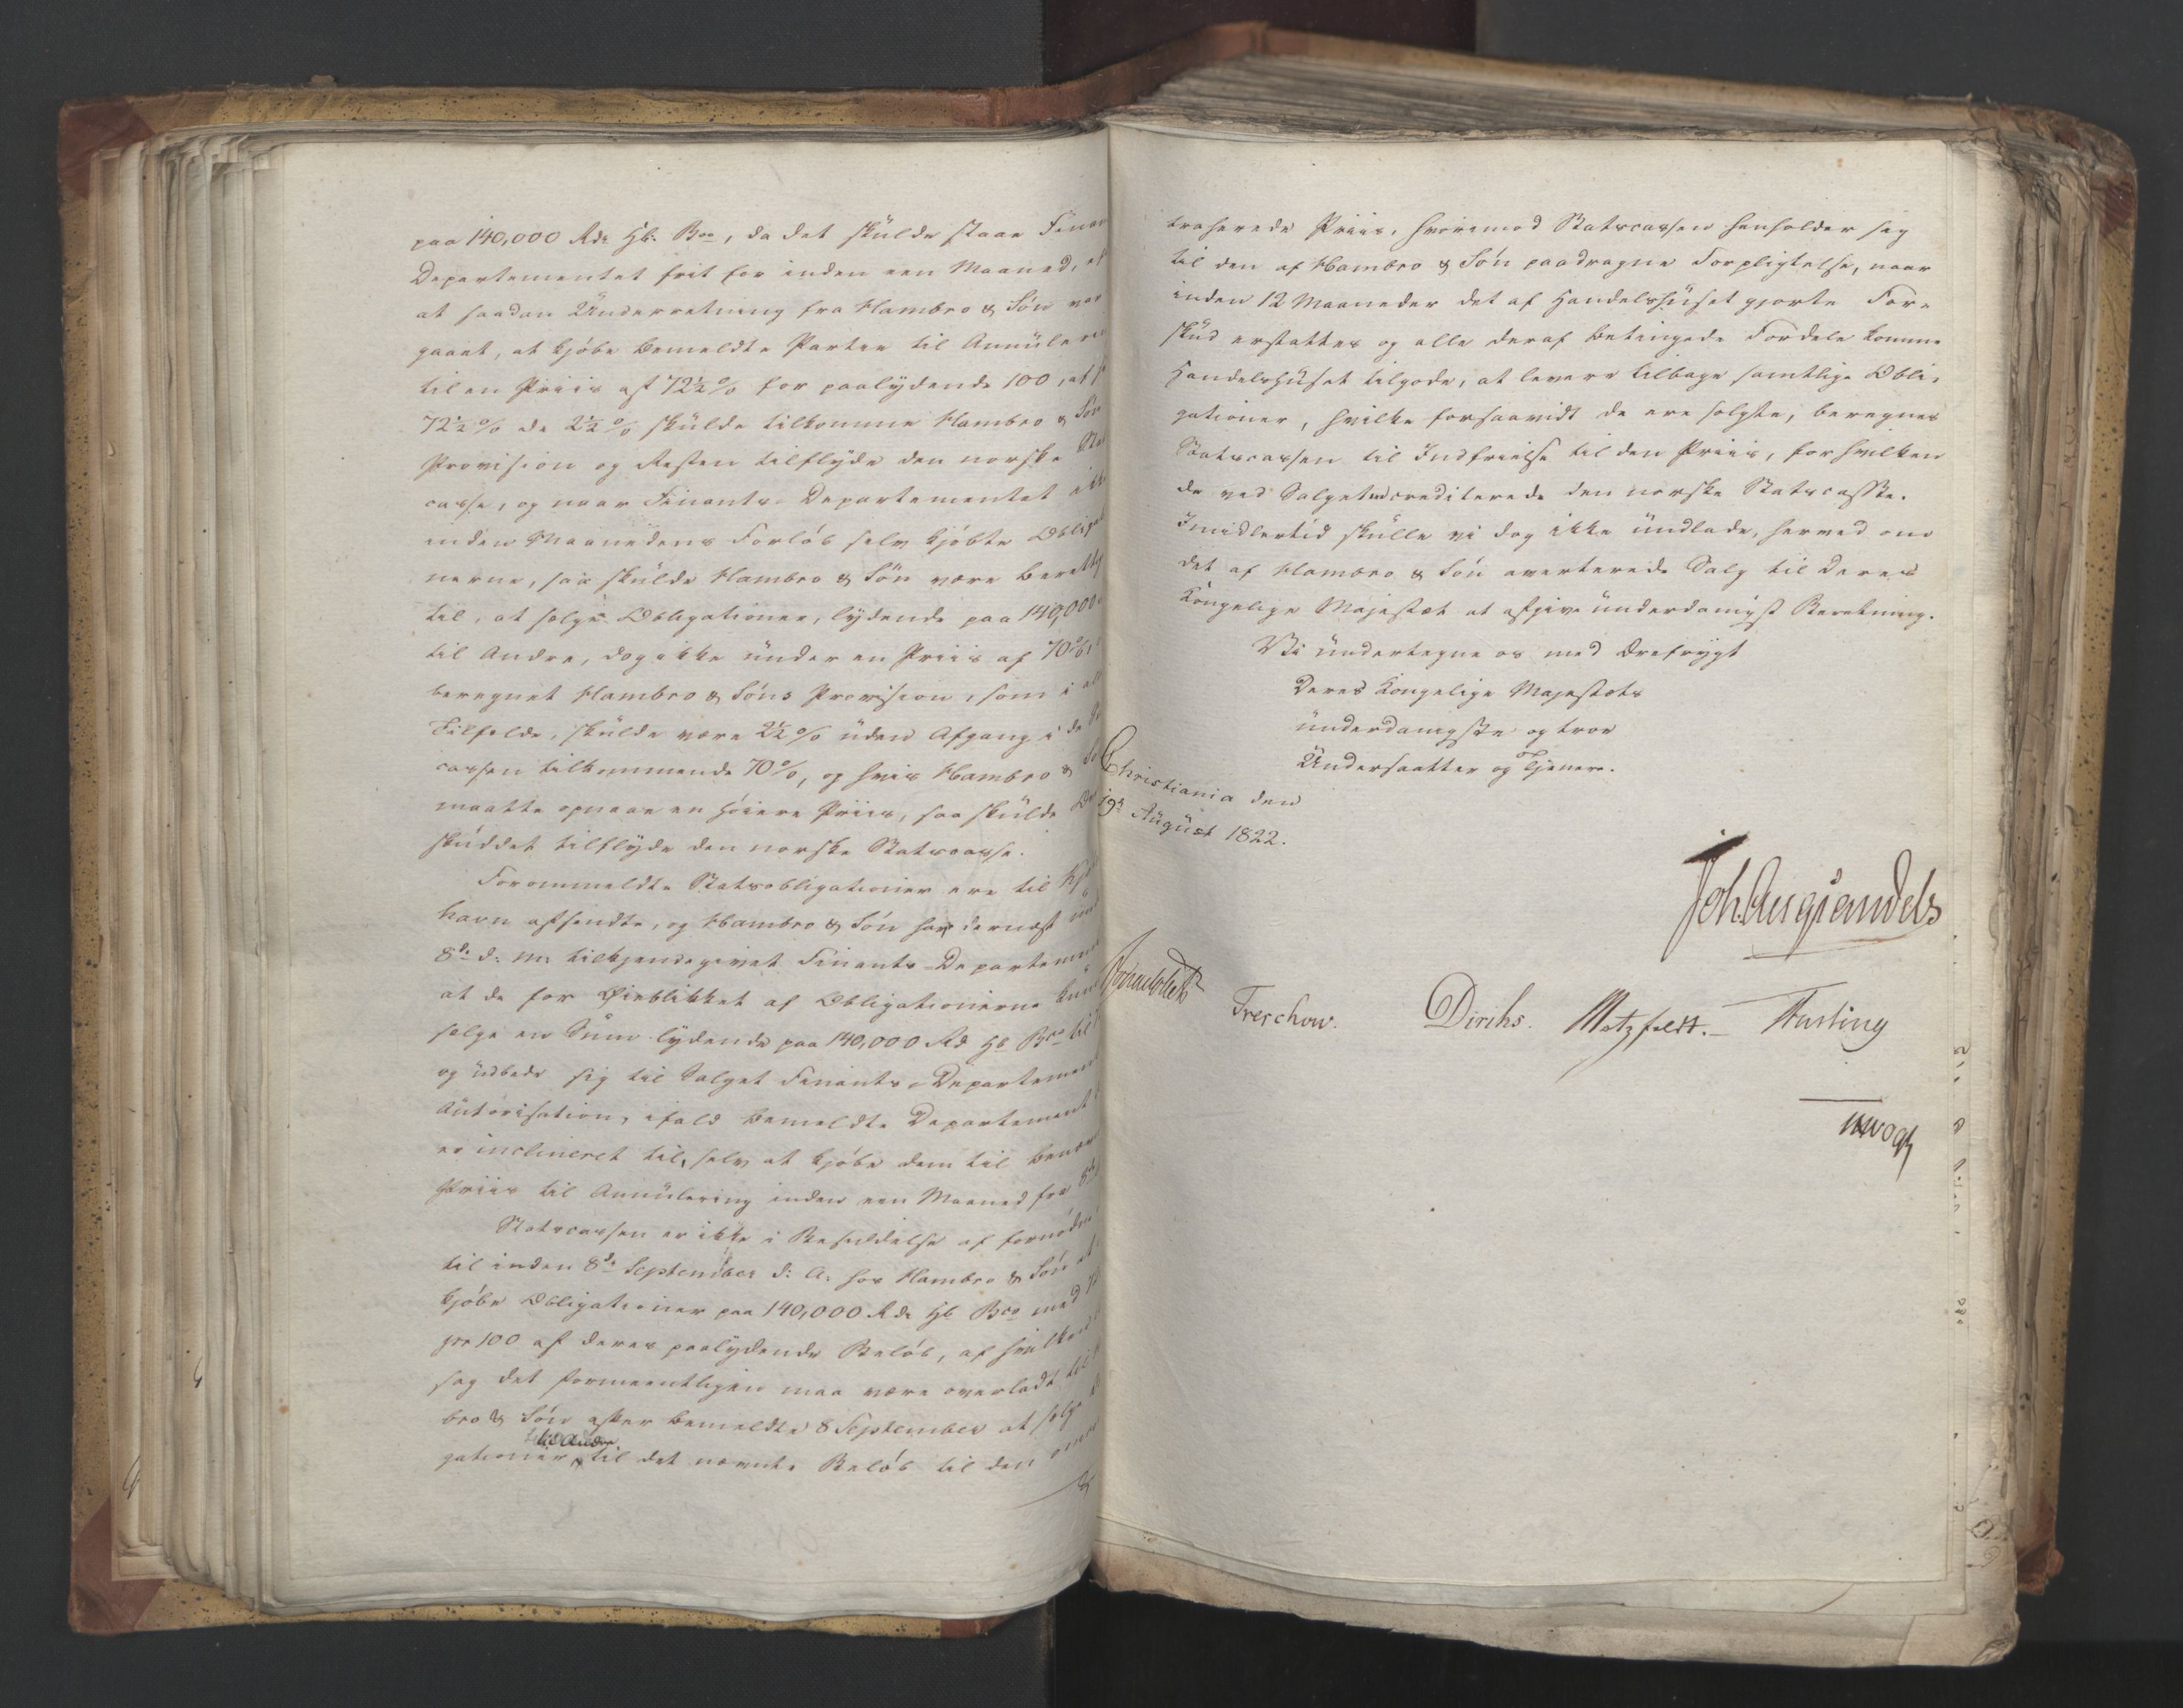 paa 140,000 Rdr Hb: Bco, da det skulde staae Finan
Departementet frit for inden een Maaned, ef
at saadan Underretning fra Hambro & Søn var
gaaet, at kjøbe bemeldte Partie til Annulere
til en Priis af 72½ % for paalydende 100, af
72½ % de 2½ % skulde tilkomme Hambro & Søn
Provision og Resten tilflyde den norske Stat
casse, og naar Finants-Departementet ikk
inden Maanedens Forløb selv kjøbte Obligat
nerne, saa skulde Hambro & Søn være beretti
til, at sælge Obligationer, lydende paa 140,000
til Andre, dog ikke under en Priis af 70 %,
beregnet Hambro & Søns Provision, som i alt
Tilfælde, skulde være 2½ % uden Afgang i de
cassen tilkommende 70 %, og hvis Hambro & Sø
maatte opnaae en høiere Priis, saa skulde Ov
skuddet tilflyde den norske Statscasse.
Forommeldte Statsobligationer ere til Kjø
havn afsendte, og Hambro & Søn har dernæst un
8de d: M: tilkjendegivet Finants-Departemen
at de for Øieblikket af Obligationerne kun
sælge en Sum lydende paa 140,000 Rd Hb Bco til
og udbede sig til Salget Finants-Departemen
Autorisation, ifald bemeldte Departement
er inclineret til, selv at kjøbe dem til benæv
Priis til Annulering inden een Maaned fra 8de
Statscassen er ikke i Besiddelse af fornødne
til inden 8de September d: A: hos Hambro & Søn at
kjøbe Obligationer paa 140,000 Rdr Hb Bco med
pro 100 af deres paalydende Beløb, af hvilken
sag det formeentligen maa være overladt til
bro & Søn efter bemeldte 8 September at sælge
til Andre
gationer til det nævnte Beløb til den
traherede Priis, hvorimod Statscassen henholder sig
til den af Hambro & Søn paadragne Forpligtelse, naar
inden 12 Maaneder det af Handelshuset gjorte For-
skud erstattes og alle deraf betingede Fordele komme
Handelshuset tilgode, at levere tilbage samtlige Obli-
gationer, hvilke forsaavidt de ere solgte, beregnes
Statscassen til Indfrielse til den Priis, for hvilken
de ved Salget crediterede den norske Statscasse.
Imidlertid skulle vi dog ikke undlade, herved om
det af Hambro & Søn averterede Salg til Deres
Kongelige Majestæt at afgive underdanigst Beretning.
Vi undertegne os med Ærefrygt
Deres Kongelige Majestæts
underdanigste og troe
Undersaatter og Tjenere.
Christiania den
19de August 1822.
Joh. Aug. Sandels
Sommerhielm
Treschow.
Diriks.
Motzfeldt.
Fasting
Vogt